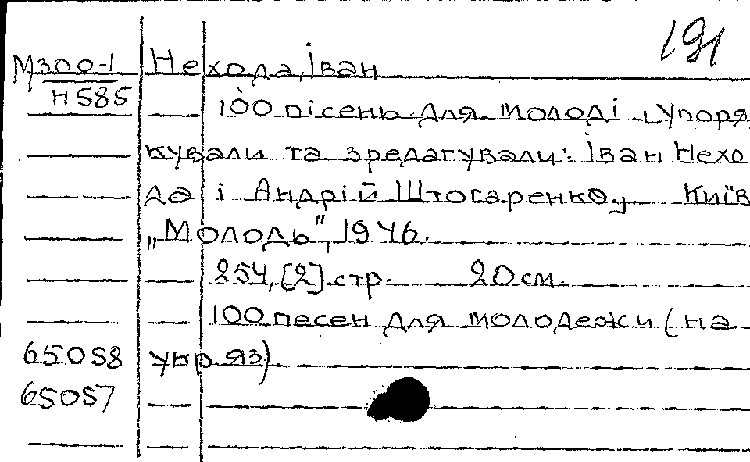 191
М3по-1 Нехода, Іван
Н585 100 пісень для молоді. Упоря
кували та зредагували: Іван Нехо
да і Андрій Штогаренко, Київ
„Молодь", 1946.
254, [2] стр. 20 см.
100 песен для молодежи (на
65058 укр. яз).
65057